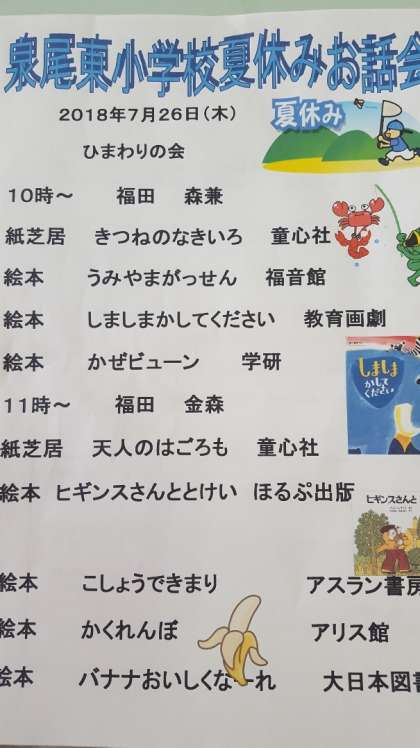 泉尾東小学校夏休みお話会
2018年7月26日(木)
夏休み
ひまわりの会
10時〜 福田 森兼
紙芝居 きつねのなきいろ 童心社
絵本 うみやまがっせん 福音館
絵本 しましまかしてください 教育画劇
絵本 かぜビューン 学研
しましま
かして
ください
11時〜 福田 金森
紙芝居 天人のはごろも 童心社
絵本 ヒギンスさんととけい ほるぷ出版
ヒギンスさんと
絵本 こしょうできまり アスラン書房
絵本 かくれんぼ アリス館
絵本 バナナおいしくなーれ 大日本図書